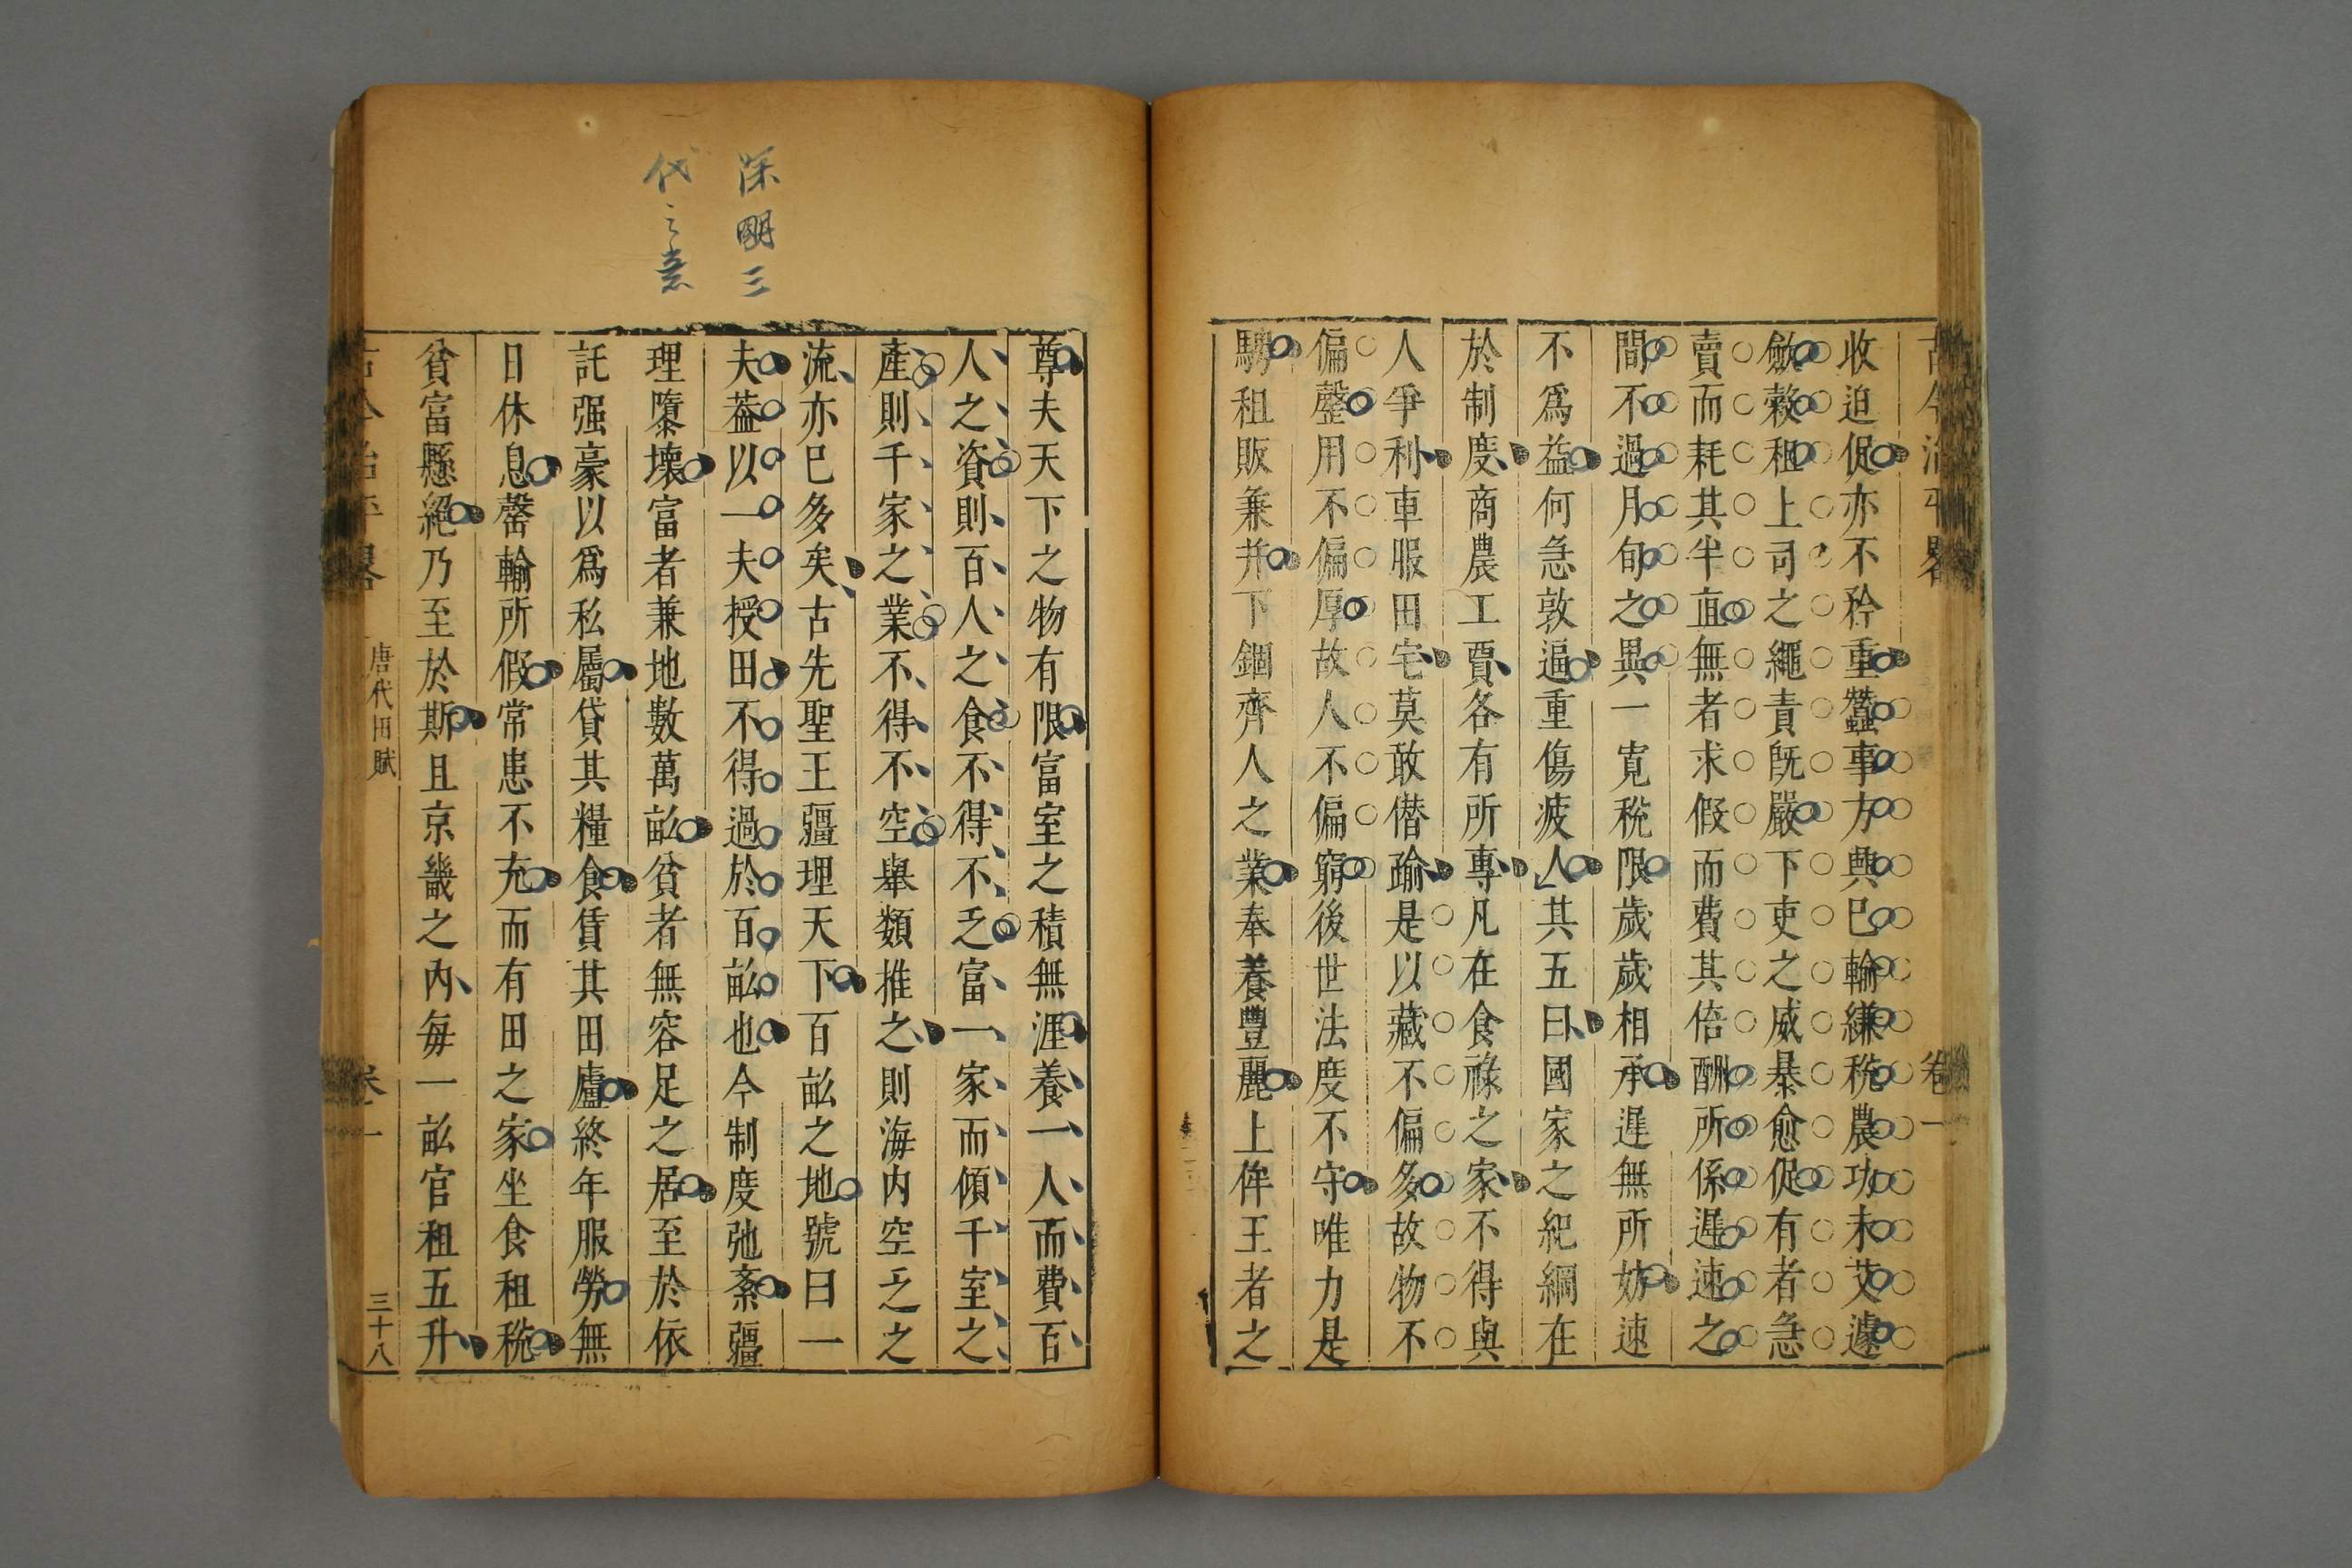 古今治平畧
卷一
收迫促亦不矜重蠶事方興巳輸縑稅農功未艾遽
斂穀租上司之繩責旣嚴下吏之威暴愈促有者急
賣而耗其半直無者求假而費其倍酬所係遲速之
間不過月旬之異一寬稅限歲歲相承遲無所妨速
不爲益何急敦逼重傷疲人其五曰國家之紀綱在
於制度商農工賈各有所專凡在食祿之家不得與
人爭利車服田宅莫敢僭踰是以藏不偏多故物不
偏罄用不偏厚故人不偏窮後世法度不守唯力是
騁租販兼并下錮齊人之業奉養豐麗上侔王者之
深明三
代之意
尊夫天下之物有限富室之積無涯養一人而費百
人之資則百人之食不得不乏富一家而傾千室之
產則千家之業不得不空舉類推之則海內空乏之
流亦巳多矣古先聖王疆理天下百畝之地號曰一
夫葢以一夫授田不得過於百畝也今制度弛紊疆
理隳壞富者兼地數萬畝貧者無容足之居至於依
託强豪以爲私屬貸其糧食賃其田廬終年服勞無
日休息罄輸所假常患不充而有田之家坐食租稅
貧富懸絕乃至於斯且京畿之內每一畝官租五升
古今治平畧
唐代田賦
卷一
三十八